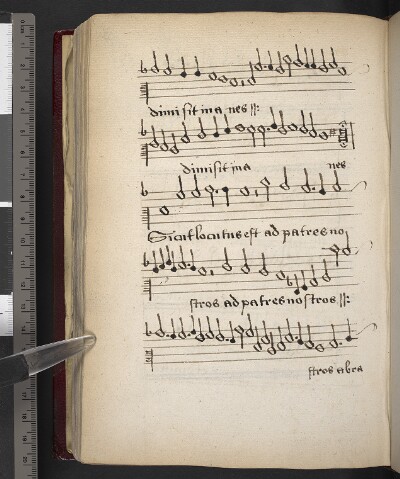 dimisit ina nes ij:
dimisit ina nes
Sicut locutus est ad patres no
stros ad patres nostros ij:
stros abra